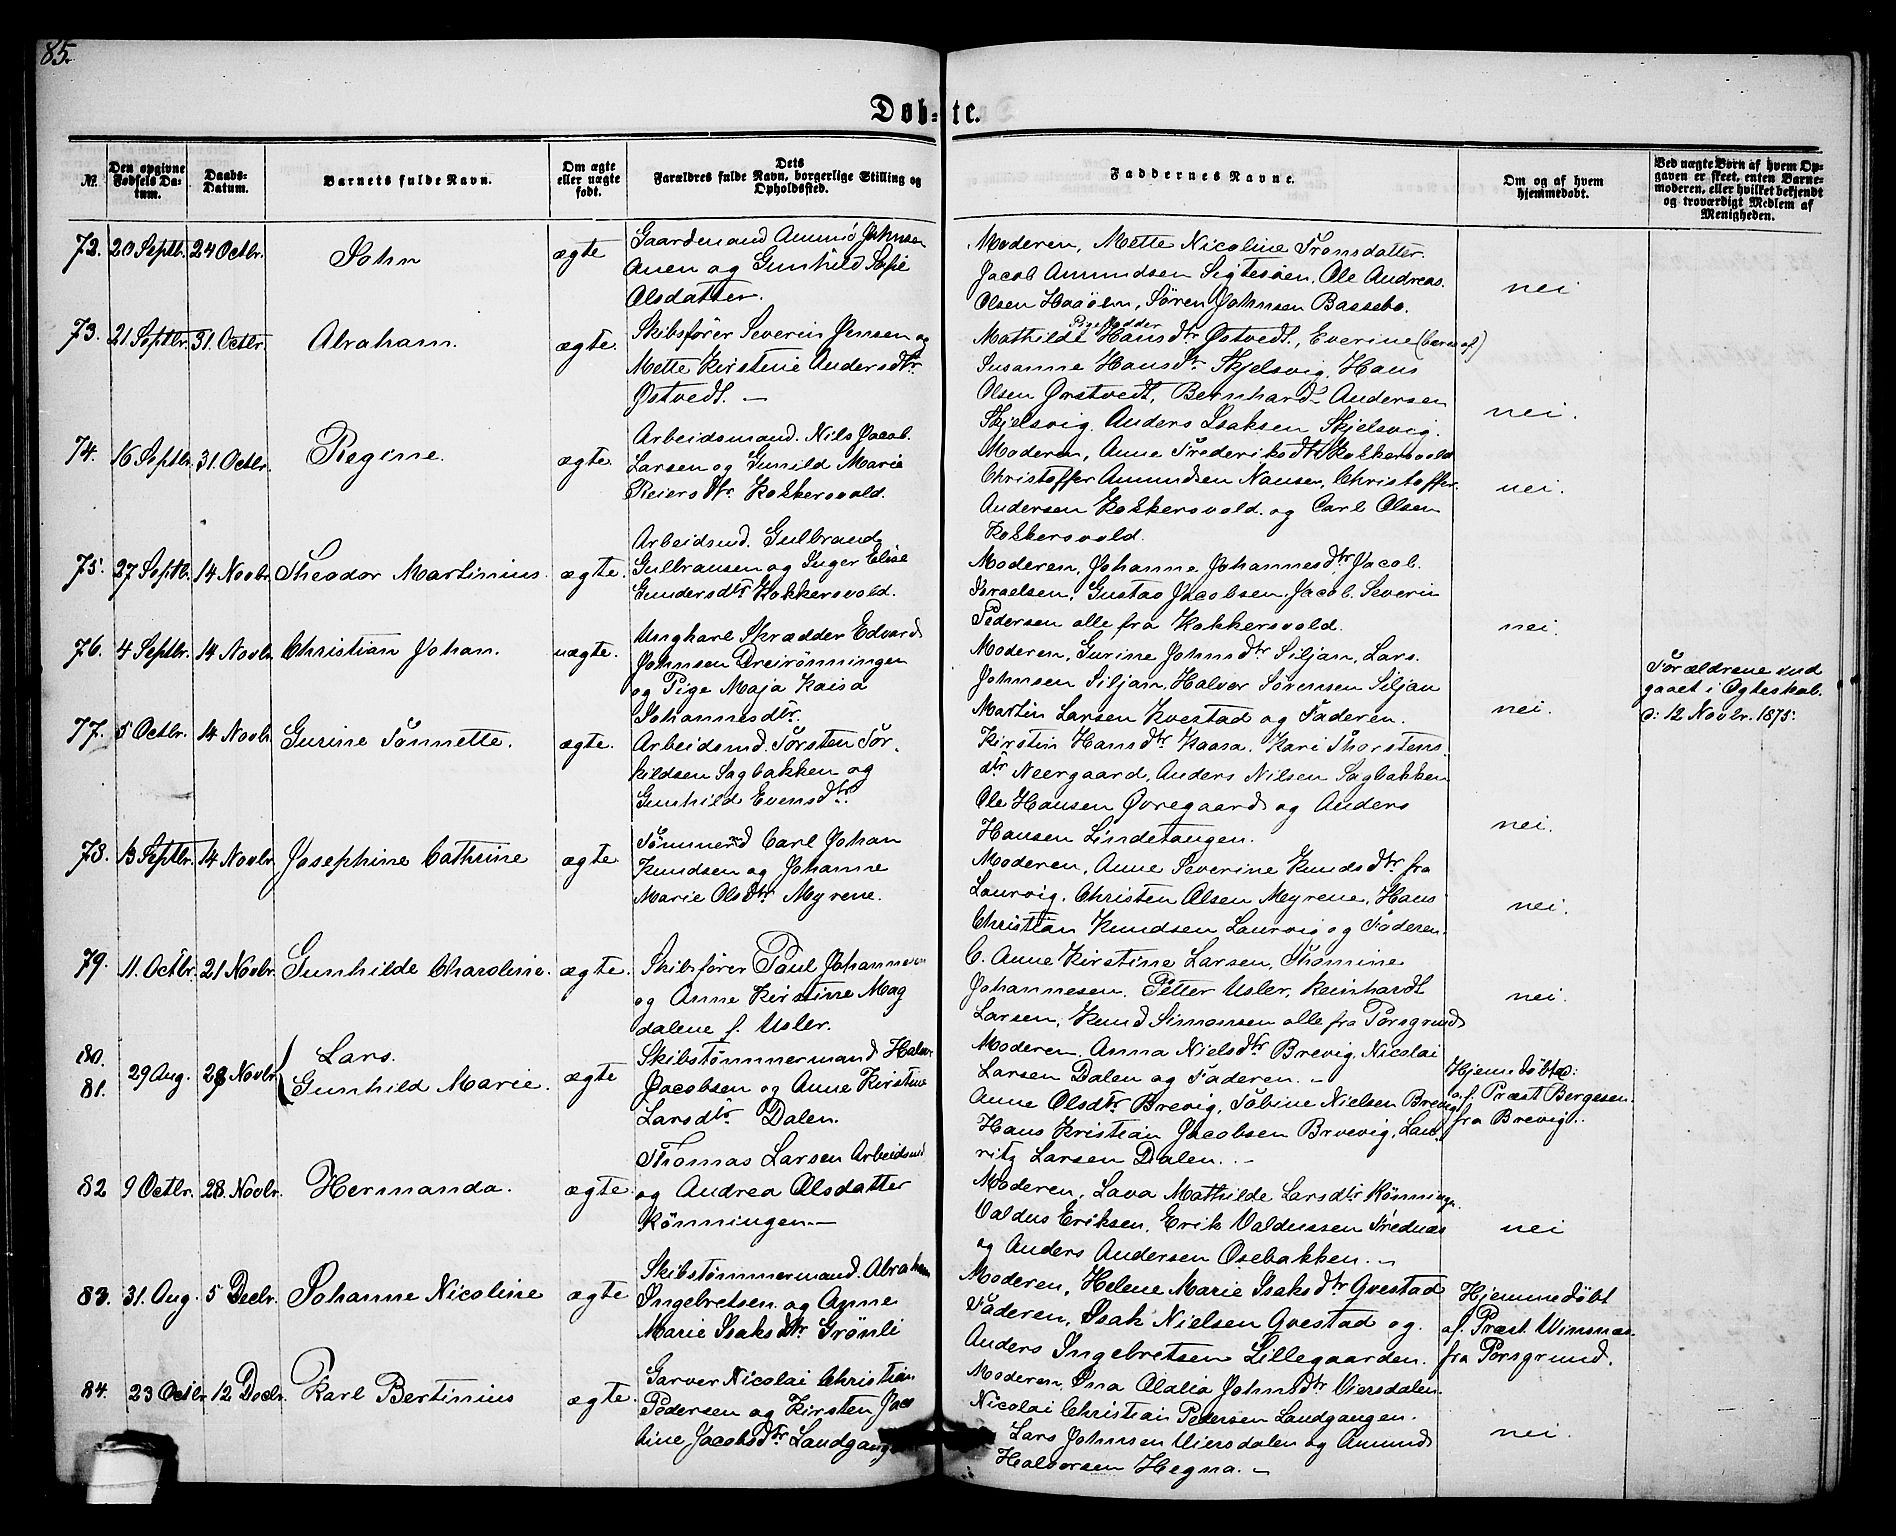 85.
Døb-te.
№.
Den opgivne Fødsels Da-tum.
Daabs-Datum.
Barnets fulde Navn.
Om ægte eller uægte født.
Dets Forældres fulde Navn, borgerlige Stilling og Opholdssted.
Faddernes Navne.
Om og af hvem hjemmedøbt.
Ved uægte Børn af hvem Op-gaven er skeet, enten Barne-moderen, eller hvilket bekjendt og troværdigt Medlem af Menigheden.
72. 20 Septbr. 24 Octbr. John ægte
Gaardmand Johnsen
Auen og Gunhild Sofie
Olsdatter.
Moderen, Mette Nicoline Tronsdatter
Jacob Amundsen Sigtesøen, Ole Andreas
Olsen Søren Johnsen Bassebo.
nei
73. 21 Septbr. 31. Octbr. Abraham. ægte.
Skibsfører Severin Jensen og
Mette Kirstine Andersdtr
Østvedt. —
Pige fadder
Mathilde Hansdtr Østvedt, Everine (baren af)
Susanne Hansdtr Skjelsvig, Hans
Olsen Ørstvedt, Bernhard Andersen
Skjelsvig. Anders Isaksen Skjelsvig.
nei.
74. 16 Septbr. 31. Octbr. Regine. ægte.
Arbeidsmand. Nils Jacob.
Larsen og Gunild Marie
Reiersdtr. Kokkersvold.
Moderen, Anne Frederiksdtr Kokkersvold
Christoffer Amundsen Nansen, Christoffer
Andersen Kokkersvold. og Carl Olsen
Kokkersvold.
nei.
75. 27 Septbr. 14 Novbr. Theodor Martinius. ægte.
Arbeidsmd. Gulbrand
Gulbransen og Inger Elise
Gundersdtr Kokkersvold.
Moderen, Johanne Johannesdtr, Jacob.
Israelsen, Gustav Jacobsen, Jacob Severin
Pedersen alle fra Kokkersvold.
nei.
76. 4 Septbr. 14 Novbr. Christian Johan. uægte.
Ungkarl Skrædder Edvard
Johnsen Dreirønningen
og Pige Maja Kaisa
Johannesdtr.
Moderen, Gurine Johnsdtr Siljan, Lars.
Johnsen Siljan, Halvor Sørensen Siljan
Martin Larsen Kvestad og Faderen.
nei.
Forældrene ind
gaaet i Ægteskab.
d: 12 Novbr. 1875.
77. 5 Octbr. 14 Novbr. Gurine Tonnette. ægte.
Arbeidsmd. Torsten Tor.
kildsen Sagbakken og
Gunhild Evensdtr.
Kirstin Hansdtr Kaasa. Kari Thorstens
dtr Neergaard, Anders Nilsen Sagbakken
Ole Hansen Øvregaard og Anders
Hansen Lindetangen.
nei.
78. 13 Septbr. 14 Novbr. Josephine Cathrine ægte
Tømmermd Carl Johan
Knudsen og Johanne
Marie Olsdtr Myrene.
Moderen, Anne Severine Knudsdtr fra
Laurvig, Christen Olsen Myrene, Hans
Christian Knudsen Laurvig og Faderen.
nei.
79. 11. Octbr. 21 Novbr. Gunhilde Charoline. ægte.
Skibsfører Paul Johannesen
og Anne Kirstine Mag
dalene f. Usler.
C. Anne Kirstine Larsen, Thomine
Johannesen, Petter Usler, Reinhardt
Larsen, Knud Simonsen alle fra Porsgrund
nei.
80. 81. 29 Aug. 28 Novbr. Lars. Gunhild Marie. ægte
Skibstømmermand Halvor
Jacobsen og Anne Kirstine
Larsdtr Dalen.
Moderen. Anna Nielsdtr Brevig, Nicolai
Larsen Dalen og Faderen. —
Anne Olsdtr Brevig, Tobine Nielsen Brevig
Hans Kristian Jacobsen Brevig, Lau
ritz Larsen Dalen. —
Hjemmedøbte:
af. Præst Bergesen.
fra Brevig.
82 9 Octbr. 28. Novbr. Hermanda. ægte.
Thomas Larsen Arbeidsmd
og Andrea Olsdatter
Rønningen. —
Moderen, Lava Mathilde Larsdtr Rønninge.
Valdus Eriksen, Erik Valdussen Frednæs
og Anders Andersen Osebakken. —
nei
83. 31. Aug. 5 Decbr. Johanne Nicoline ægte
Skibstømmermand. Abraham
Ingebretsen og Anne
Marie Isaksdtr Grønli
Moderen, Helene Marie Isaksdtr Qvestad
Faderen, Isak Nielsen Qvestad og.
Anders Ingebretsen Lillegaarden.
Hjemmedøbt
af. Præst. Wimsnæs
fra Porsgrund.
84. 23 Octbr 12 Decbr. Karl Bertinius ægte.
Garver Nicolai Christian
Pedersen og Kirsten Jaco
bine Jacobsdtr Landgangen
Moderen, Ina Alalia Johnsdtr Viersdalen.
Nicolai Christian Pedersen Landgangen.
Lars Johnsen Viersdalen og Amund
Halvorsen Hegna. —
nei.